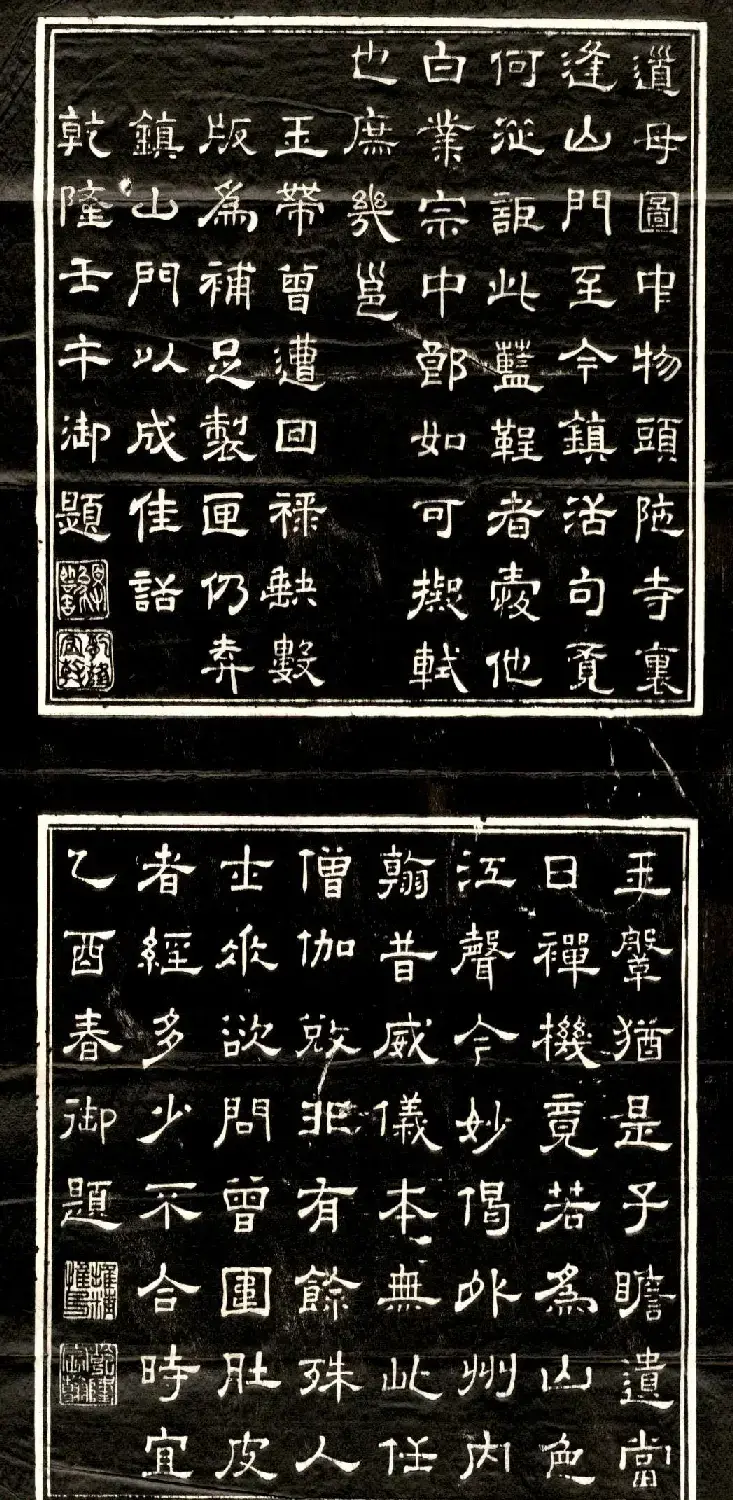 道母圖中物頭陀寺裏
逢山門至今鎮活句覓
何從詎此藍鞓者愛他
白業宗中郎如可擬軾
也庶幾邕
玉帶曾遭回祿缺數
版為補足製匣仍弆
鎮山門以成佳話
乾隆壬午御題
乾隆宸翰
玉鞶猶是子瞻遺當
日禪機竟若為山色
江聲今妙偈外州內
翰昔威儀本無此任
僧伽敚非有餘殊人
士來欲問曾圍肚皮
者經多少不合時宜
乙酉春御題
乾隆宸翰